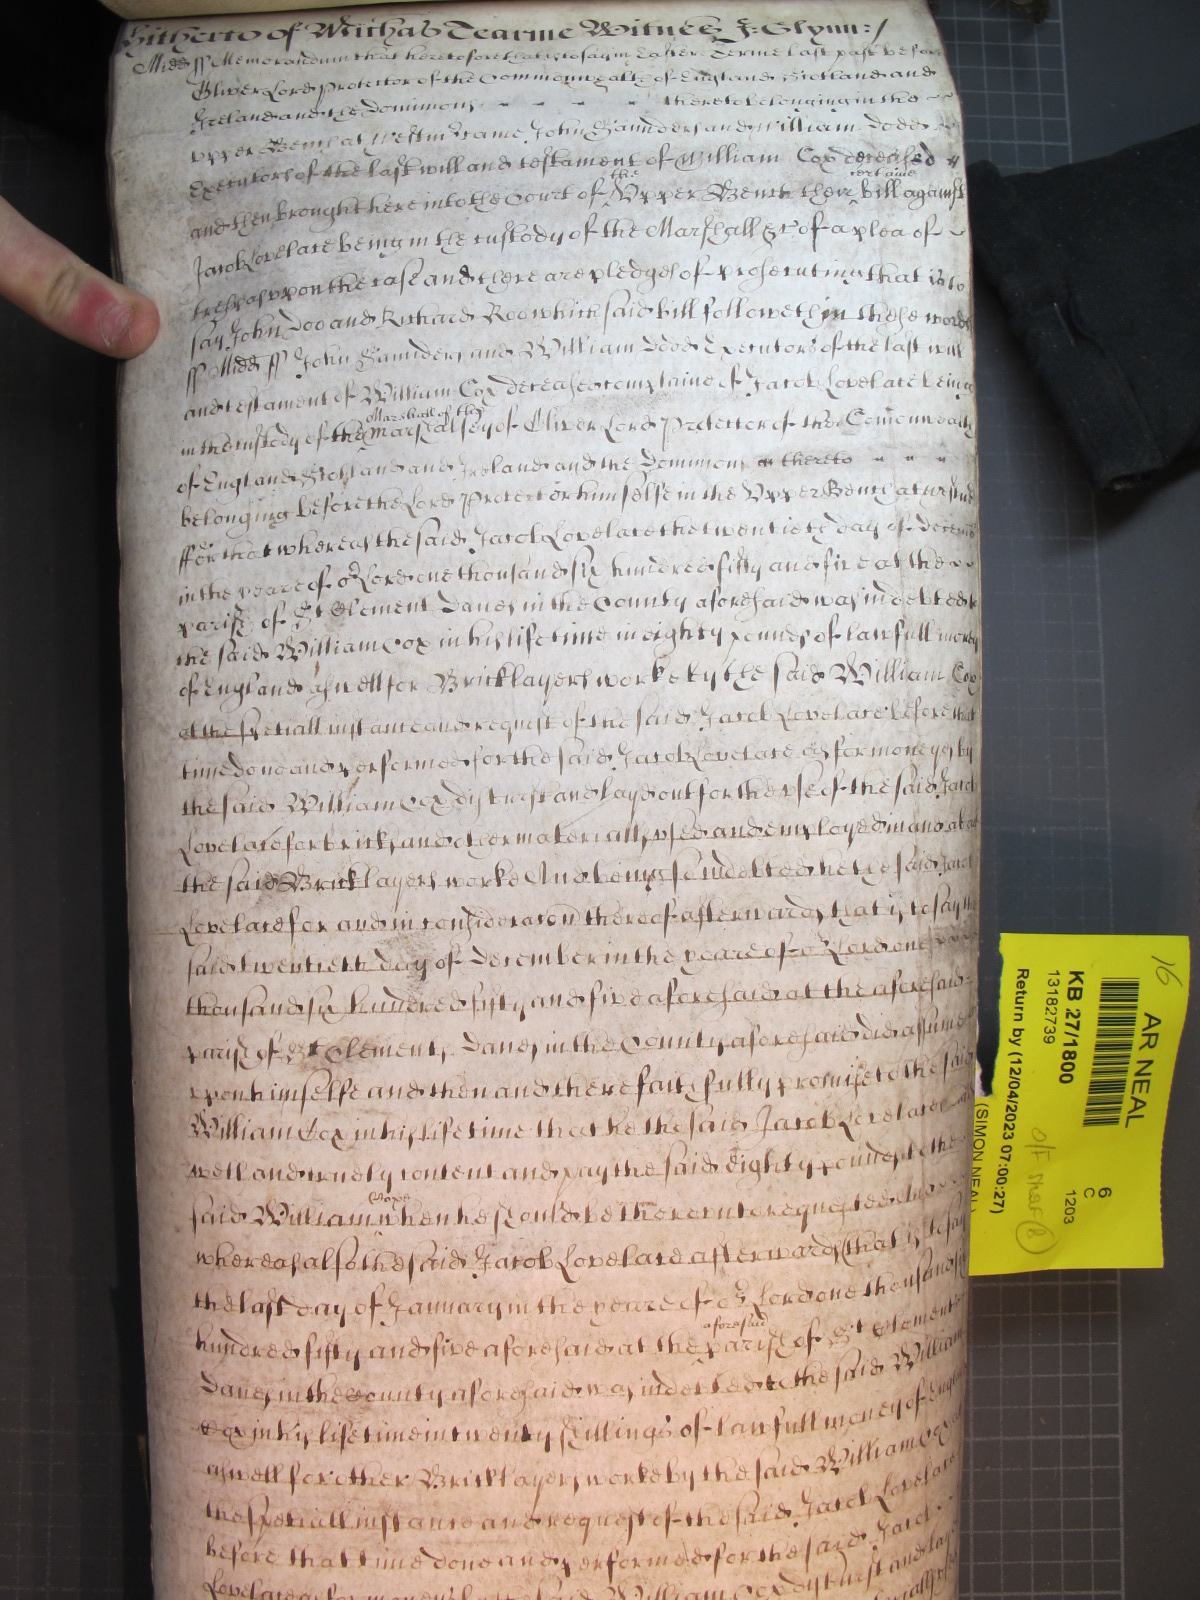 Hitherto of Michas Tearme Witnes J: Glynn:/
Midd ss Memorandum that heretofore that is to say in Easter Terme last past before
Oliver Lord Protector of the Commonwealth of England Scotland and
Ireland and the Dominions thereto belonging in the
Upper Bench at Westmr came John Saunders and William Dodd
Executors of the last will and testament of William Cox deceased
and then brought here into the Court of the Upper Bench their certaine bill against
Jacob Lovelace being in the custody of the Marshall &c of a plea of
trespas upon the case and there are pledges of prosecuting that is to
say John Doo and Richard Roo which said bill followeth in these words
ss Midd ss John Saunders and William Dodd Executors of the last will
and testament of William Cox deceased complaine of Jacob Lovelace being
in the custody of the Marshall of the Marshalsey of Oliver Lord Protector of the Comonwealth
of England Scotland and Ireland and the Dominions thereto
belonging before the Lord Protector himselfe in the Upper Bench at
ffor that whereas the said Jacob Lovelace the twentieth day of
in the yeare of or Lord one thousand six hundred fifty and five at the
parish of St Clement Danes in the County aforesaid was indebted to
the said William Cox in his life time in eighty pounds of lawfull money
of England aswell for Bricklayers worke by the said William Cox
at the speciall instance and request of the said Jacob Lovelace before that
time done and performed for the said Jacob Lovelace as for moneyes by
the said William Cox disburst and layd out for the use of the said Jacob
Lovelace for bricks and other materialls used and employed in and about
the said Bricklayers worke And being so indebted he the said Jacob
Lovelace for and in consideracon thereof afterwards that is to say the
said twentieth day of December in the yeare of or Lord one
thousand six hundred fifty and five aforesaid at the aforesaid
parish of St Clements Danes in the County aforesaid did assume
upon himselfe and then and there faithfully promise to the said
William Cox in his life time that he the said Jacob Lovelace
well and truely content and pay the said Eighty pounds to the
said William Coxe when he should be thereunto requested And
whereas alsoe the said Jacob Lovelace afterwards (that is to say
the last day of January in the yeare of or Lord one thousand six
hundred fifty and five aforesaid at the parish aforesaid of St Clement
Danes in the County aforesaid was indebted to the said William
Cox in his life time in twenty shillings of lawfull money of England
aswell for other Bricklayers worke by the said William Cox at
the speciall instance and request of the said Jacob Lovelace
before that time done and performed for the said Jacob
Lovelace as for moneyes by the said William Cox disburst and layd
16
AR NEAL
KB 27/1800
13182739
Return by (12/04/2023 07:00:27)
(SIMON NEAL)
6
C
1203